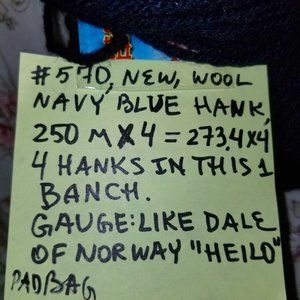 #570, NEW, WOOL
NAVY BLUE HANK,
250 M X 4 = 273.4 X 4
4 HANKS IN THIS 1
BANCH.
GAUGE: LIKE DALE
OF NORWAY "HEILO"
PADBAG